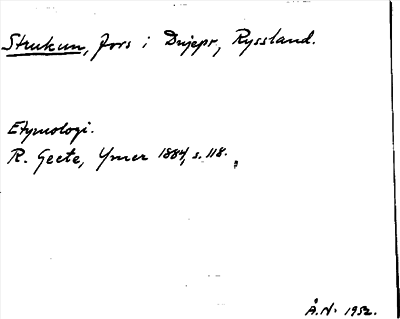 Strukun, fors i Dnjepr, Ryssland.
Etymologi.
R. Geete, Ymer 1884, s. 118.
Å.N. 1952.